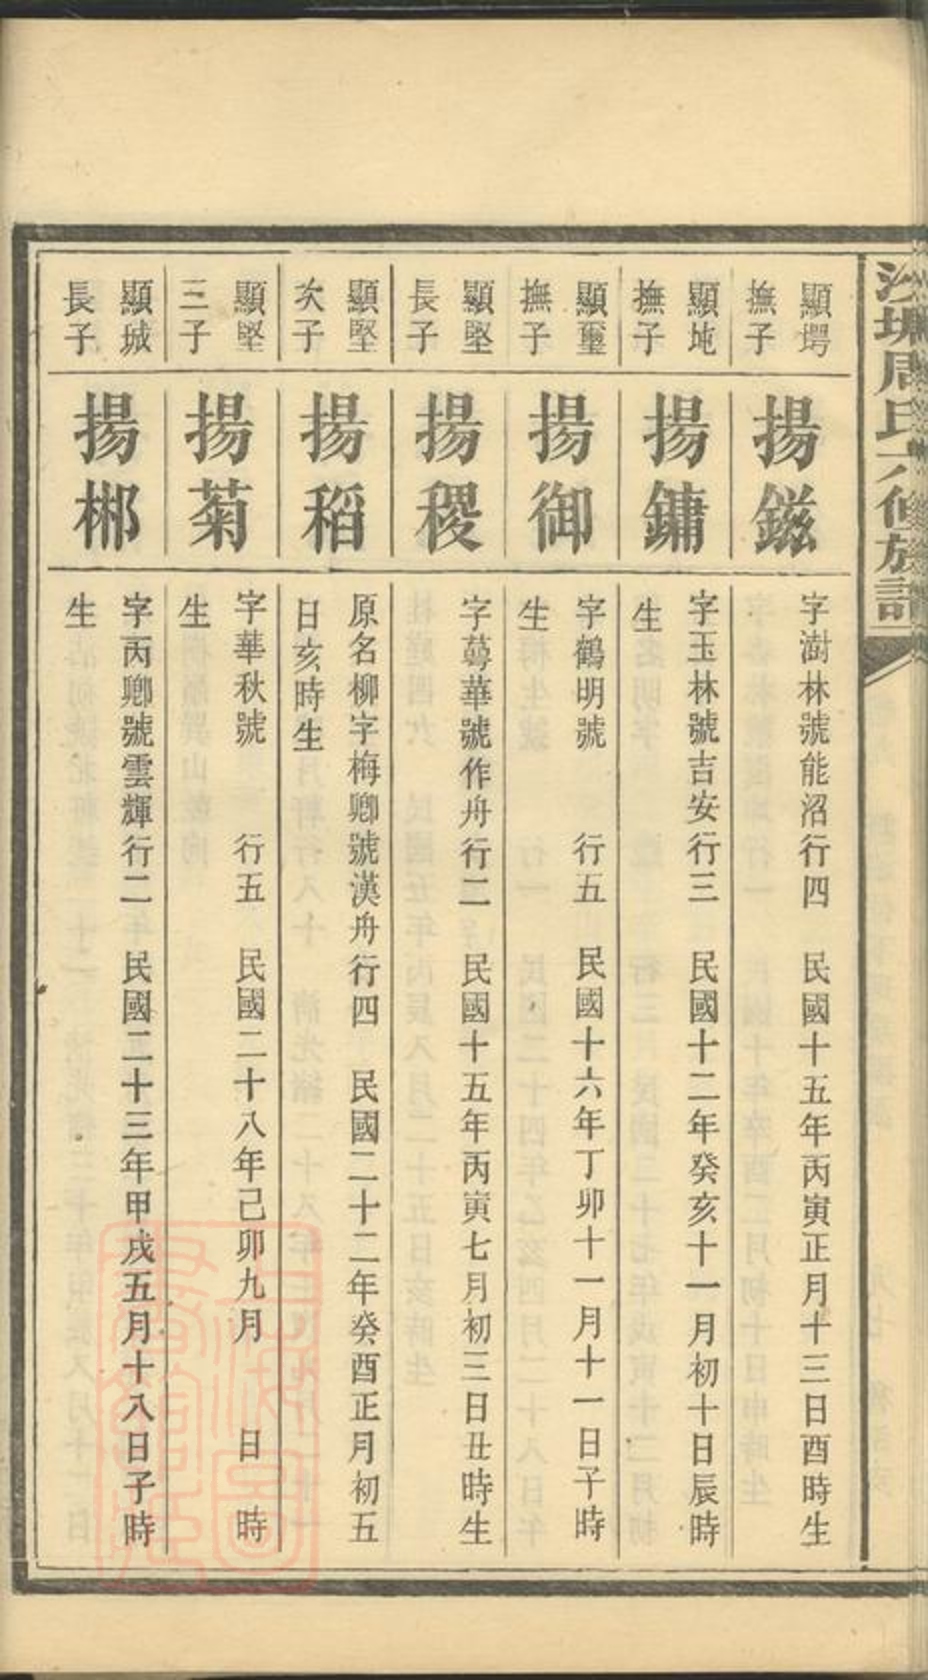 沙塘周氏六修族譜
顯堮
撫子
揚鎡
字澍林號能沼行四　民國十五年丙寅正月十三日酉時生
顯垉
撫子
揚鏞
字玉林號吉安行三　民國十二年癸亥十一月初十日辰時
生
顯璽
撫子
揚御
字鶴明號　　行五　民國十六年丁卯十一月十一日子時
生
顯堅
長子
揚稷
字萼華號作舟行二　民國十五年丙寅七月初三日丑時生
顯堅
次子
揚稻
原名柳字梅卿號漢舟行四　民國二十二年癸酉正月初五
日亥時生
顯堅
三子
揚菊
字華秋號　　行五　民國二十八年己卯九月　　日　時
生
顯城
長子
揚郴
字丙卿號雲輝行二　民國二十三年甲戌五月十八日子時
生